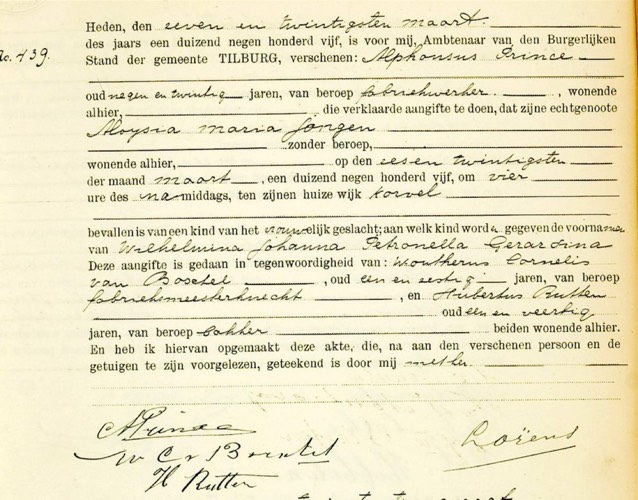 Heden, den zeven en twintigsten maart
No. 439. des jaars een duizend negen honderd vijf, is voor mij, Ambtenaar van den Burgerlijken
Stand der gemeente TILBURG, verschenen: Alphonsus Prince
oud negen en twintig jaren, van beroep fabriekwerker, wonende
alhier, die verklaarde aangifte te doen, dat zijne echtgenoote
Aloysia Maria Jongen
zonder beroep,
wonende alhier, op den zes en twintigsten
der maand maart, een duizend negen honderd vijf, om vier
ure des namiddags, ten zijnen huize wijk Korvel
bevallen is van een kind van het vrouwelijk geslacht; aan welk kind worden gegeven de voorname
van Wilhelmina Johanna Petronella Gerardina
Deze aangifte is gedaan in tegenwoordigheid van: Woutherus Cornelis
van Boxtel, oud een en zestig jaren, van beroep
fabrieksmeesterknecht, en Hubertus Rutten
oud een en veertig
jaren, van beroep bakker beiden wonende alhier.
En heb ik hiervan opgemaakt deze akte, die, na aan den verschenen persoon en de
getuigen te zijn voorgelezen, geteekend is door mij met hen.
A Prince
W C v Boxtel
H Rutten